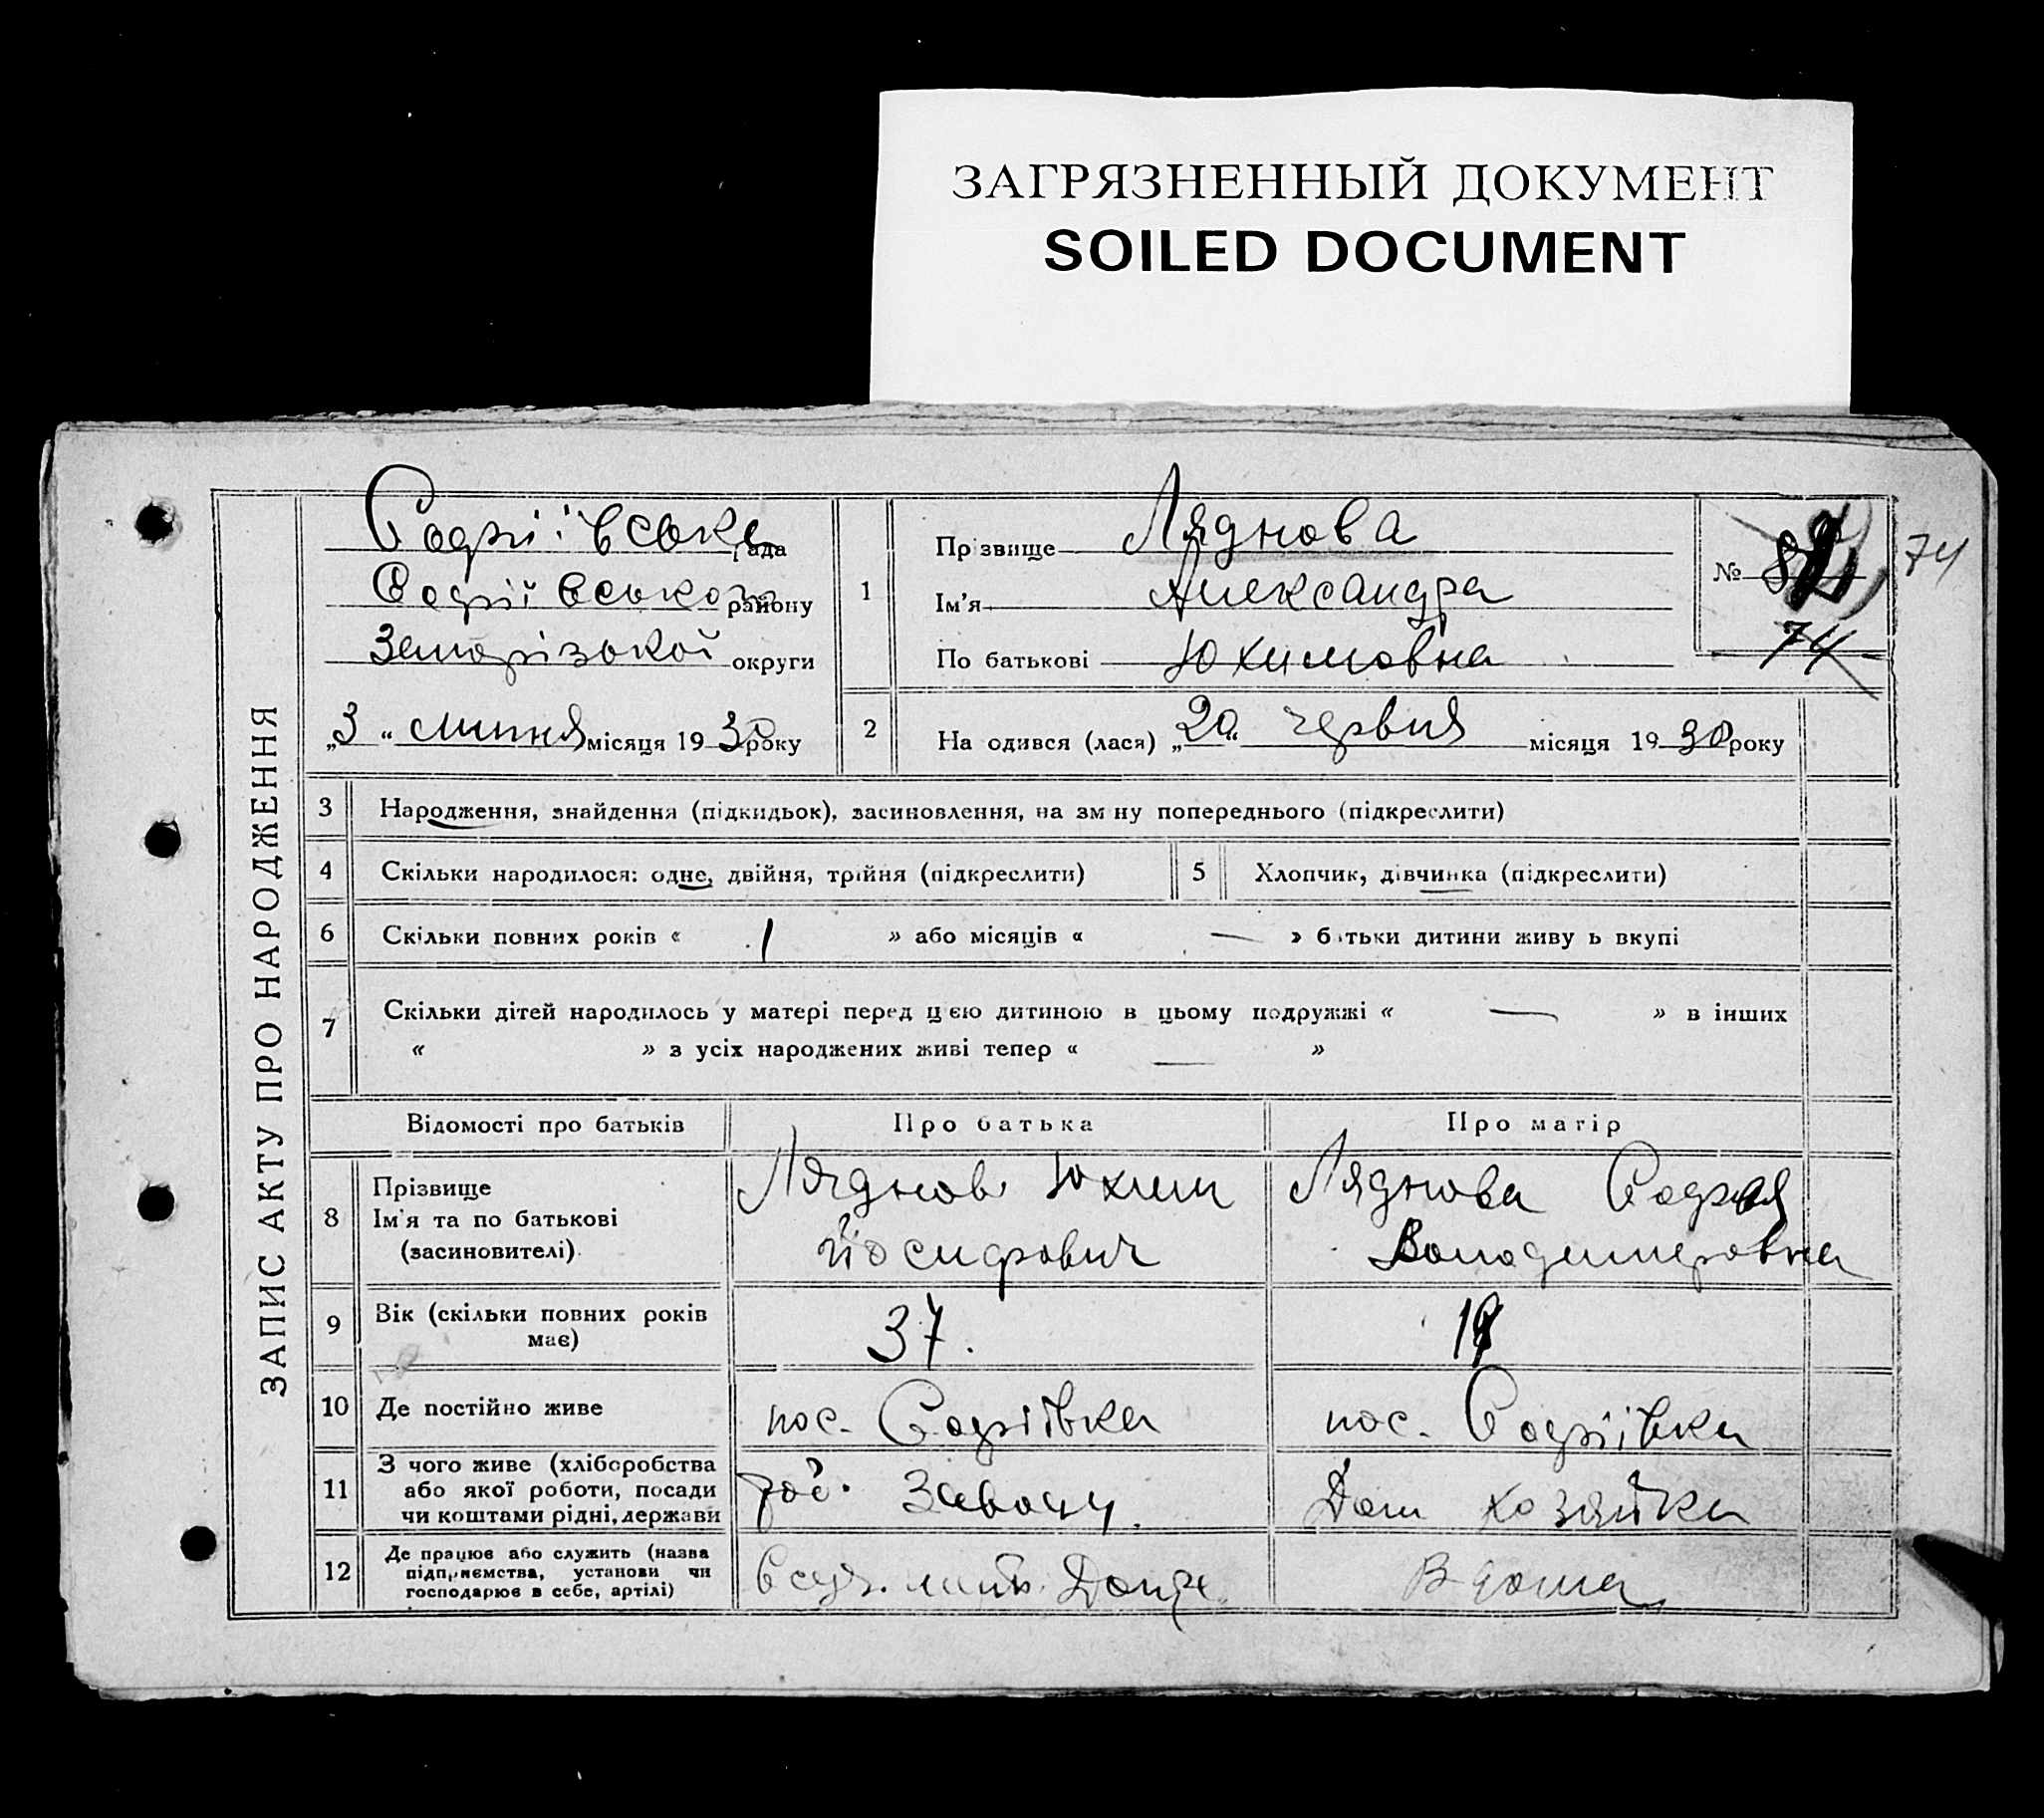 ЗАГРЯЗНЕННЫЙ ДОКУМЕНТ
SOILED DOCUMENT
ЗАПИС АКТУ ПРО НАРОДЖЕННЯ
Софіївська рада
Софіївського району
Запорізької округи
„3“ липня місяця 1930 року
1
Прізвище Ляднова
Ім'я Александра
По батькові Юхимовна
№
74
74
2
На одився (лася) „20“ червня місяця 1930 року
3 Народження, знайдення (підкидьок), засиновлення, на зм ну попереднього (підкреслити)
4 Скільки народилося: одне, двійня, трійня (підкреслити)
5 Хлопчик, дівчинка (підкреслити)
6 Скільки повних років « 1 » або місяців « — » б тьки дитини живу ь вкупі
7 Скільки дітей народилось у матері перед цією дитиною в цьому подружжі « — » в інших
« » з усіх народжених живі тепер « — »
Відомості про батьків Про батька Про матір
8 Прізвище
Ім'я та по батькові
(засиновителі)
Ляднов Юхим
Йосифович
Ляднова Софья
Володимеровна
9 Вік (скільки повних років
має)
37.
10 Де постійно живе
пос. Софіївка
пос. Софіївка
11 З чого живе (хліборобства
або якої роботи, посади
чи коштами рідні, держави
роб. Заводу.
Дом хозяйка
12 Де працює або служить (назва
підприємства, установи чи
господарює в себе, артілі)
В дома